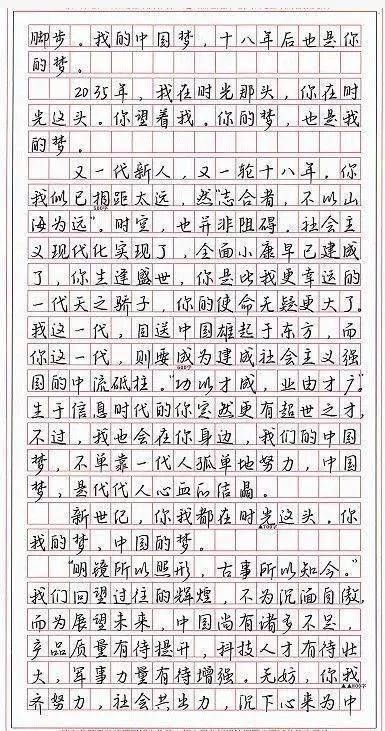 脚步。我的中国梦，十八年后也是你
的梦。
2035年，我在时光那头，你在时
光这头。你望着我。你的梦，也是我
的梦。
又一代新人，又一轮十八年。你
我似已相距太远，然“志合者，不以山
海为远”。时空，也并非阻碍。社会主
义现代化实现了，全面小康早已建成
了，你生逢盛世，你是比我更幸运的
一代天之骄子，你的使命无疑更大了。
我这一代，目送中国雄起于东方，而
你这一代，则要成为建成社会主义强
国的中流砥柱。“功以才成，业由才广。”
生于信息时代的你定然更有超世之才，
不过，我也会在你身边，我们的中国
梦，不单靠一代人孤单地努力，中国
梦，是代代人心血的结晶。
新世纪，你我都在时光这头。你
我的梦，中国的梦。
“明镜所以照形，古事所以知今。”
我们回望过往的辉煌，不为沉湎自傲，
而为展望未来，中国尚有诸多不足，
产品质量有待提升，科技人才有待壮
大，军事力量有待增强。无妨，你我
齐努力，社会共出力，沉下心来为中